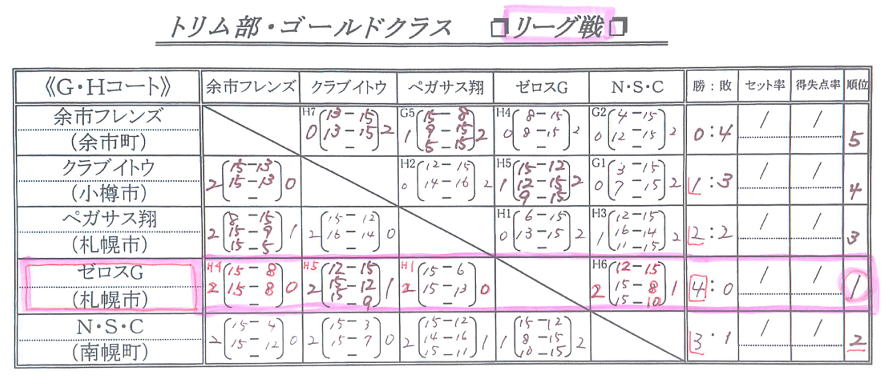 トリム部・ゴールドクラス ❐リーグ戦❐
《G・Hコート》 余市フレンズ クラブイトウ ペガサス翔 ゼロスG N・S・C 勝：敗 セット率 得失点率 順位
余市フレンズ
(余市町)
H7 0 (13-15 13-15 -) 2
G5 1 (15-8 9-15 5-15) 2
H4 0 (8-15 8-15 -) 2
G2 0 (4-15 12-15 -) 2
0:4 / / 5
クラブイトウ
(小樽市)
2 (15-13 15-13 -) 0
H2 0 (12-15 14-16 -) 2
H5 1 (15-12 12-15 9-15) 2
G1 0 (3-15 7-15 -) 2
1:3 / / 4
ペガサス翔
(札幌市)
2 (8-15 15-9 15-5) 1
2 (15-12 16-14 -) 0
H1 0 (6-15 13-15 -) 2
H3 1 (12-15 16-14 11-15) 2
2:2 / / 3
ゼロスG
(札幌市)
H4 2 (15-8 15-8 -) 0
H5 2 (12-15 15-12 15-9) 1
H1 2 (15-6 15-13 -) 0
H6 2 (12-15 15-8 15-10) 1
4:0 / / 1
N・S・C
(南幌町)
2 (15-4 15-12 -) 0
2 (15-3 15-7 -) 0
2 (15-12 14-16 15-11) 1
1 (15-12 8-15 10-15) 2
3:1 / / 2